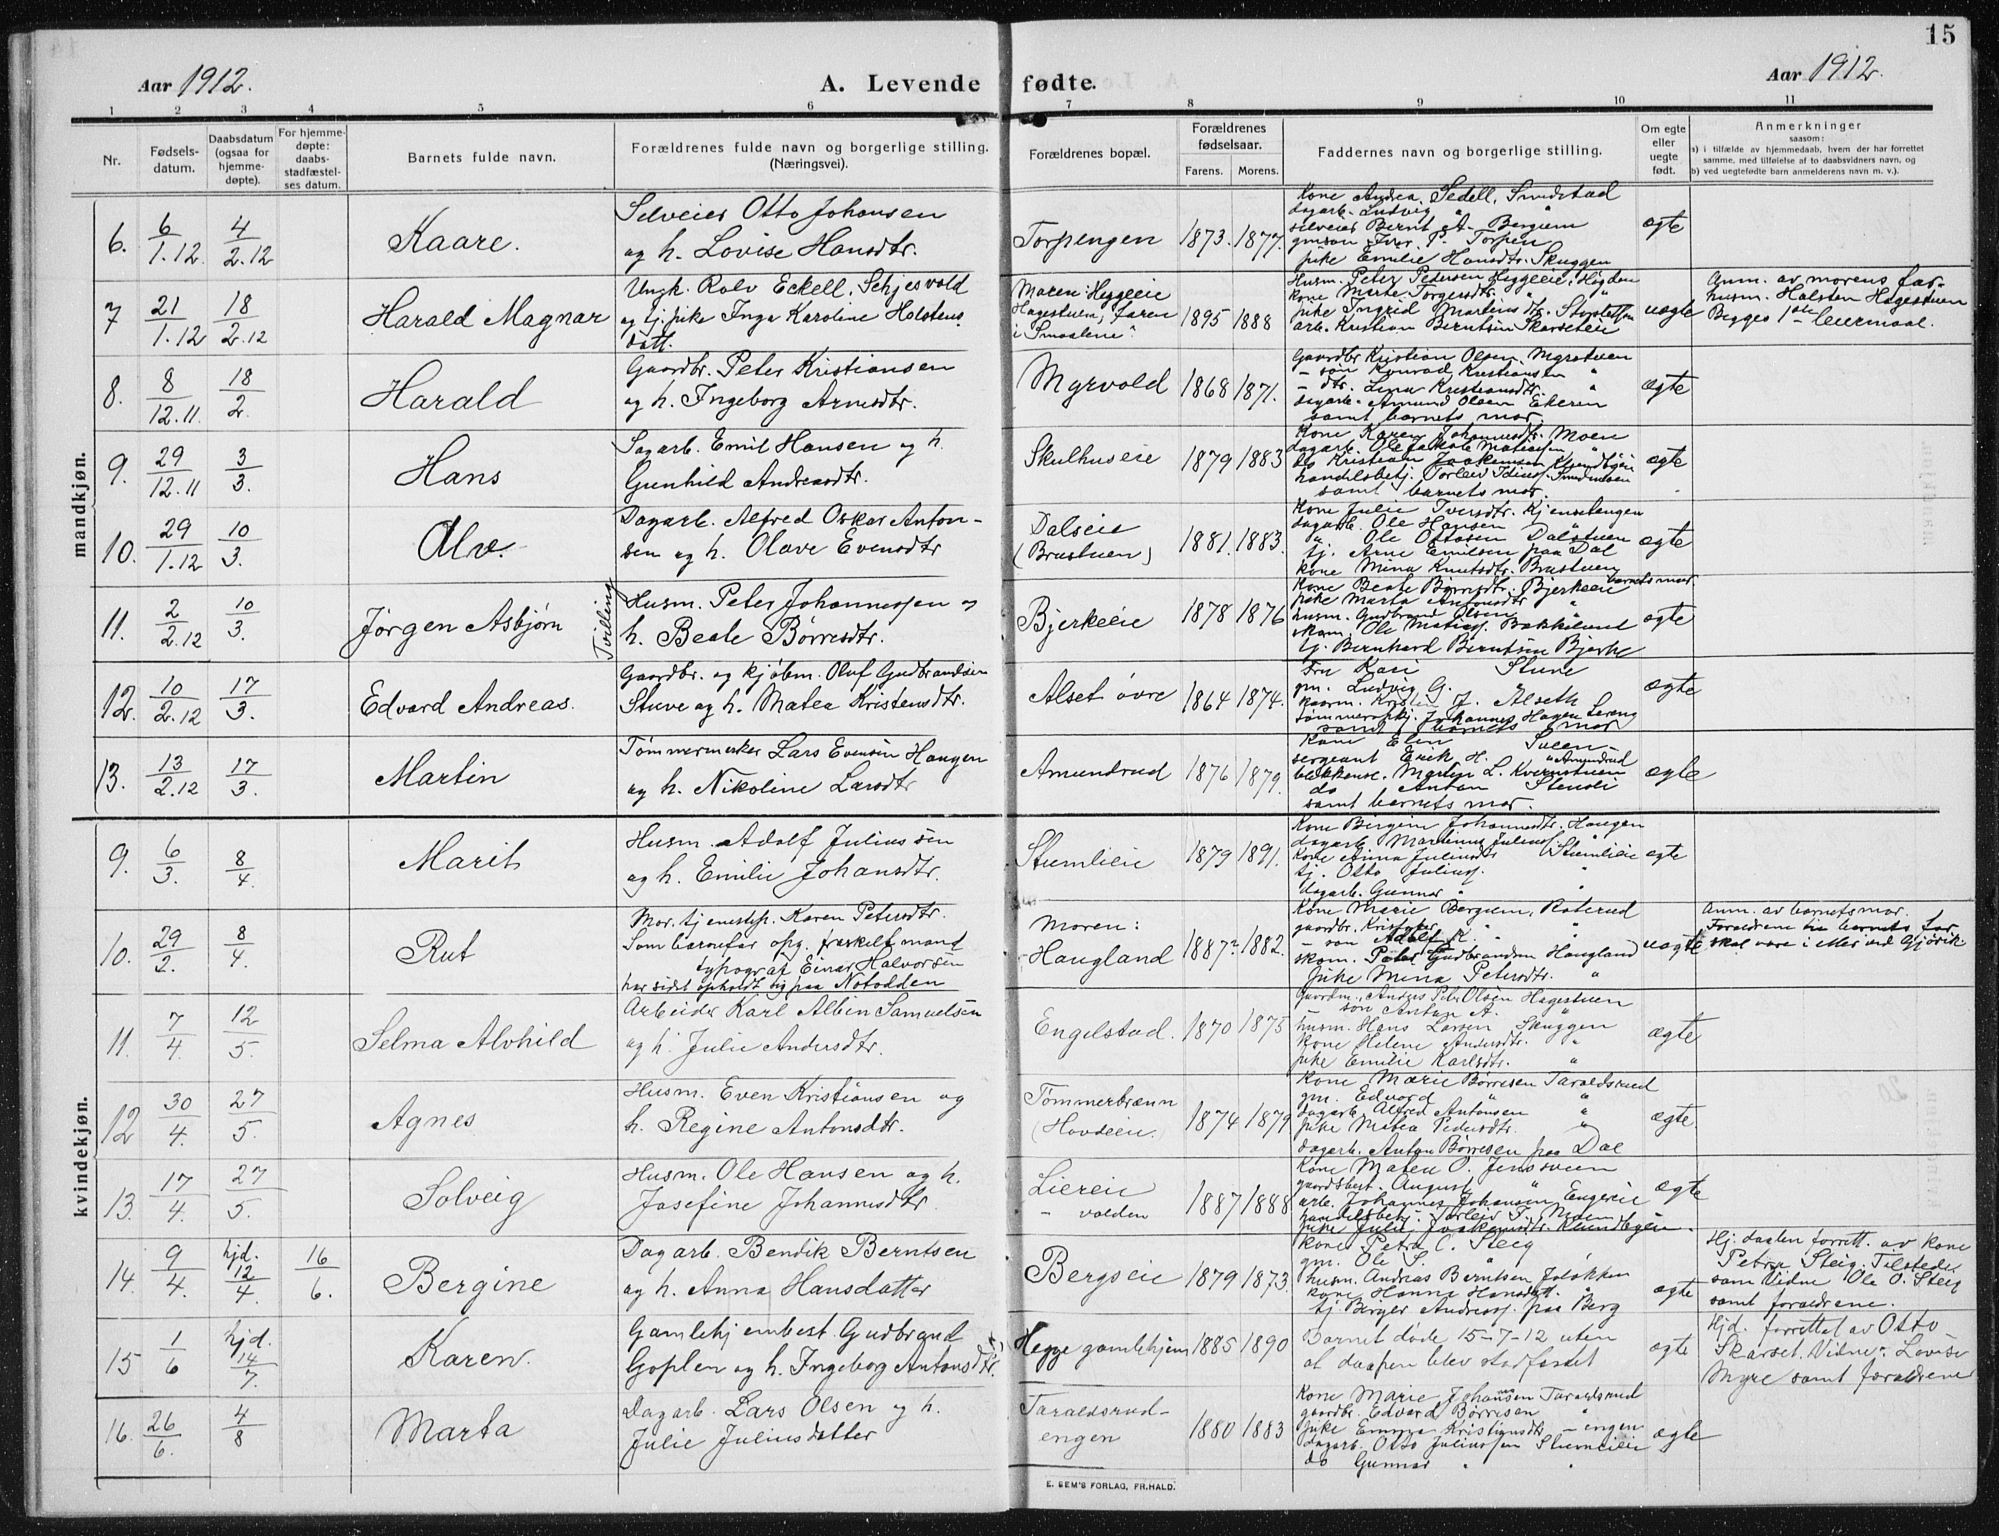 15
Aar 1912.
A. Levende fødte.
Aar 1912.
1 2 3 4 5 6 7 8 9 10 11
Nr.
Fødsels-
datum.
Daabsdatum
(ogsaa for
hjemme-
døpte).
For hjemme-
døpte:
daabs-
stadfæstel-
ses datum.
Barnets fulde navn.
Forældrenes fulde navn og borgerlige stilling.
(Næringsvei).
Forældrenes bopæl.
Forældrenes
fødselsaar.
Farens. Morens.
Faddernes navn og borgerlige stilling.
Om egte
eller
uegte
født.
Anmerkninger
saasom:
a) i tilfælde av hjemmedaab, hvem der har forrettet
samme, med tilføielse af to daabsvidners navn, og
b) ved uegtefødte barn anmelderens navn m. v.).
mandkjøn.
6. 6/1.12 4/2.12 Kaare.
Selveier Otto Johansen
og h. Lovise Hansdtr.
Torpengen 1873. 1877.
Kone Andrea Sedell, Smedstad
dagarb. Ludvig "
selveier Bernt A. Bergum
gmsøn Ivar P. Torpen
pike Emilie Hansdtr. Skuggen
ægte
7 21/1.12 18/2.12 Harald Magnar
Ungk. Rolv Eckell, Schjesvold
og tj. pike Inga Karoline Holstens
datt.
Moren: Heggeeie
Hagestuen, faren
i Smaalene.
1895 1888
Husm. Peter Pedersen Heggeeie, Høgden
kone Marte Torgersdtr. "
pike Ingrid Martinusdtr.
arb. Kristian Berntsen Skarseteie
uægte
Anm. av morens far
husm. Halsten Hagestuen
Begges 1ste leiermaal.
8. 8/12.11. 18/2. Harald
Gaardbr. Peter Kristiansen
og h. Ingeborg Arnesdtr.
Myrvold 1868 1871.
Gaardbr Kristian Olsen Myrstuen
- søn Konrad Kristiansen "
- dtr. Lina Kristiansdtr. "
dagarb. Amund Olsen Ekeren
samt barnets mor.
ægte
9. 29/12.11 3/3 Hans
Sagarb. Emil Hansen og h.
Gunhild Andreasdtr.
Skulhuseie 1879 1883
Kone Karen Johannesdtr. Moen
dagarb. Ole Jakob Matiasen "
do Kristian Joakimsen
handelsbetj. Torleiv
samt barnets mor.
ægte
10. 29/1.12 10/3. Alv.
Dagarb. Alfred Oskar Anton-
sen og h. Olave Evensdtr
Dalseie
(Brustuen)
1881. 1883.
Kone Julie Iversdtr. Kjenset­engen
dagarb. Ole Hansen "
" Ole Ottosen Dalstuen
tj. Arne Emilsen paa Dal
kone Mina Knutsdtr. Brustuen
ægte
11. 2/2.12 10/3. Jørgen Asbjørn
Tvilling
Husm. Peter Johannessen og
h. Beate Børresdtr.
Bjerkeeie 1878 1876
Kone Beate Børresdtr. Bjerkeeie barnets mor
pike Marta Antonsdtr "
husm. Gudbrand Olsen
skom. Ole Matias. Bakkelund
tj. Bernhard Berntsen Bjerke
ægte
12. 10/2.12 17/3. Edvard Andreas.
Gaardbr. og kjøbm. Oluf Gudbrandsen
Stuve og h. Matea Kristensdtr.
Alset øvre 1864 1874.
Fru Kari Stune
gm. Ludvig G. "
gaardm. Kristen J. Alseth
tømmeropkj. Johannes Hagen Lereng
samt barnets mor
ægte
13. 13/2.12 17/3. Martin
Tømmermerker Lars Evensen Haugen
og h. Nikoline Larsdtr
Amundrud 1876 1879.
Kone Elin Sveen
sergeant Erik H. " Amundrud
blikkensl. Martin L. Kvernstuen
do Anton Stensli
samt barnets mor.
ægte
kvindekjøn.
9. 6/3. 8/4. Marit
Husm. Adolf Juliussen
og h. Emilie Johansdtr.
Stumlieie 1879 1891.
Kone Birgim Johannesdtr. Haugen
dagarb. Martinus Julius. "
Kone Anna Juliusdtr Stumlieie
tj. Otto Julius. "
dagarb. Gunnar " "
ægte
10. 29/2. 8/4. Rut
Mor. tjenestep. Karen Petersdtr.
Som barnefar opg. fraskelt mand
typograf Einar Halvorsen
har sidst opholdt sig paa Notodden
Moren:
Haugland
1887? 1882.
Kone Marie Bergum, Roterud
gaardbr. Kristofer "
- søn Adolf K. "
skom. Peter Gudbrandsen Haugland
pike Mina Petersdtr. "
uægte
Anm. av barnets mor.
Forældrene til barnets far
skal være i eller ved Gjøvik
11. 7/4 12/5. Selma Alvhild
Arbeider Karl Albin Samuelsen
og h. Julie Andersdtr.
Engelstad. 1870 1875
Gaardm. Anders Peter Olsen Hagestuen
- søn Anton A. "
husm. Hans Larsen Skuggen
kone Helene Andersdtr. "
pike Emilie Karlsdtr. "
ægte
12 30/4. 27/5. Agnes
Husm. Even Kristiansen og
h. Regine Antonsdtr.
Tømmerbrænn
(Hovdeen.)
1874 1879
Kone Marie Børresen Taraldsrud
gm. Edvard " "
dagarb. Alfred Antonsen "
pike Matea Pedersdtr. "
dagarb. Anton Børresen paa Dal
ægte
13. 17/4. 27/5. Solveig
Husm. Ole Hansen og h.
Josefine Johannesdtr.
Liereie
- volden
1887 1888
Kone Matea O. Jensveen
gaardsbest. August "
arb. Johannes Johansen Engereie
handelsbetj. Torleiv T. Moen
pike Julie Joakimsdtr.
ægte
14. 9/4. hjd. 12/4 16/6. Bergine
Dagarb. Bendik Berntsen
og h. Anna Hansdatter
Bergseie 1879 1873.
Kone Petra O. Steig
gm. Ole S. "
husm. Andreas Berntsen Joløkken
kone Hanna Hansdatt. "
tj. Berger Andreass. paa Berg
ægte
Hj. daaben forrett. av kone
Petra Steig. Tilstede
som Vidne Ole O. Steig
samt forældrene.
15 1/6 hjd. 14/7. Karen.
Gamlehjembest. Gudbrand
Goplen og h. Ingeborg Antonsdtr.
Hegge gamlehjem 1885 1890
Barnet døde 15-7-12 uten
at daapen blev stadfæstet
ægte
Hjd. forrettet av Otto
Skarset. Vidne: Lovise
Myre samt forældrene
16. 26/6. 4/8 Marta
Dagarb. Lars Olsen og h.
Julie Juliusdatter
Taraldsrud-
engen
1880 1883
Kone Marie Johansen Taraldsrud
gaardbr. Edvard Børresen "
pike Emma Kristiansdtr - engen
dagarb. Otto Juliussen Stumlieie
do Gunnar " "
ægte
E. SEM'S FORLAG, FR.HALD.